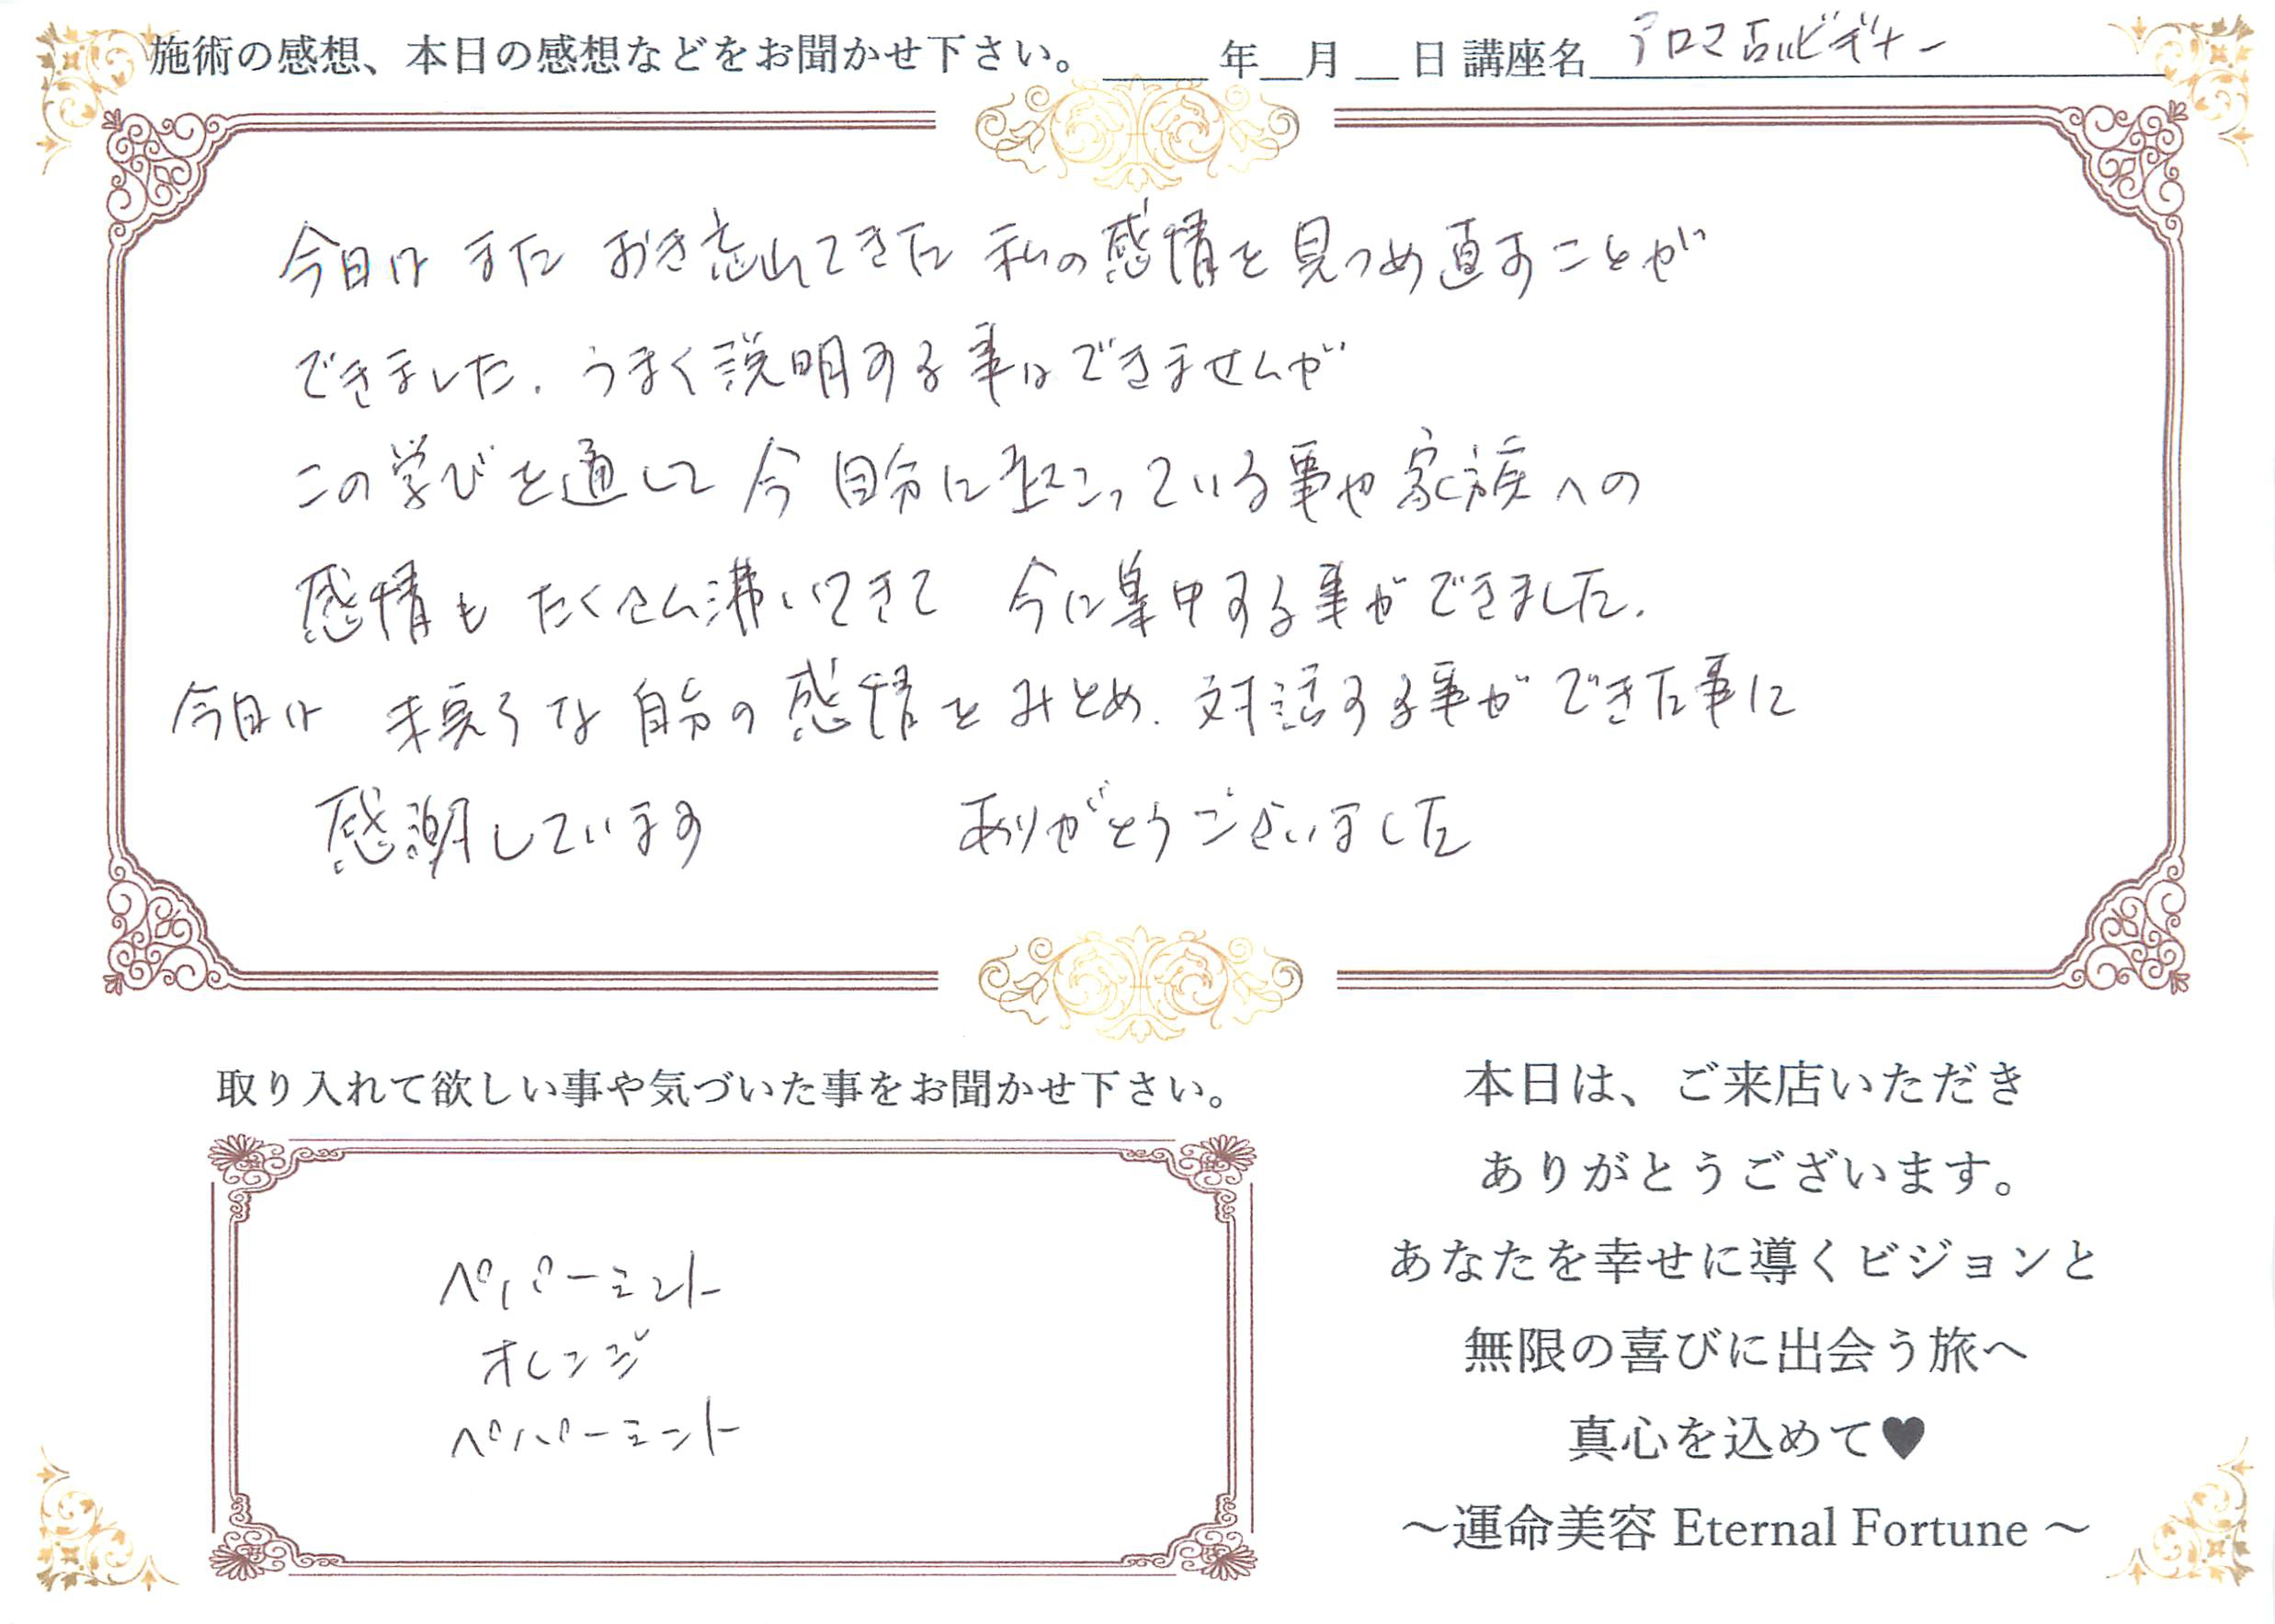 施術の感想、本日の感想などをお聞かせ下さい。 ____ 年__月 __ 日 講座名 アロマ占いビギナー
今日は また おき忘れてきた 私の感情を見つめ直すことが
できました. うまく説明する事はできませんが
この学びを通して 今 自分に起こっている事や家族への
感情も たくさん沸いてきて 今に集中する事ができました.
今日は 未完了な自分の感情をみとめ. 対話する事ができた事に
感謝しています ありがとうございました
取り入れて欲しい事や気づいた事をお聞かせ下さい。
ペパーミント
オレンジ
ペパーミント
本日は、ご来店いただき
ありがとうございます。
あなたを幸せに導くビジョンと
無限の喜びに出会う旅へ
真心を込めて♥
～運命美容 Eternal Fortune ～